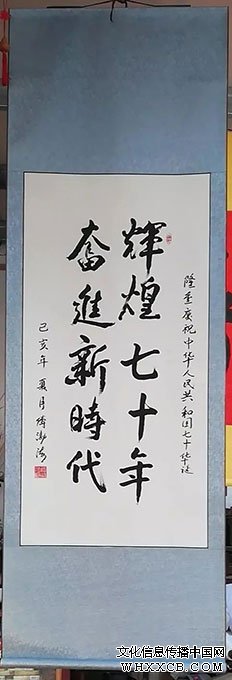 隆重庆祝中华人民共和国七十华诞
輝煌七十年
奮進新時代
己亥年夏月
文化信息传播中国网
WHXXCB.COM